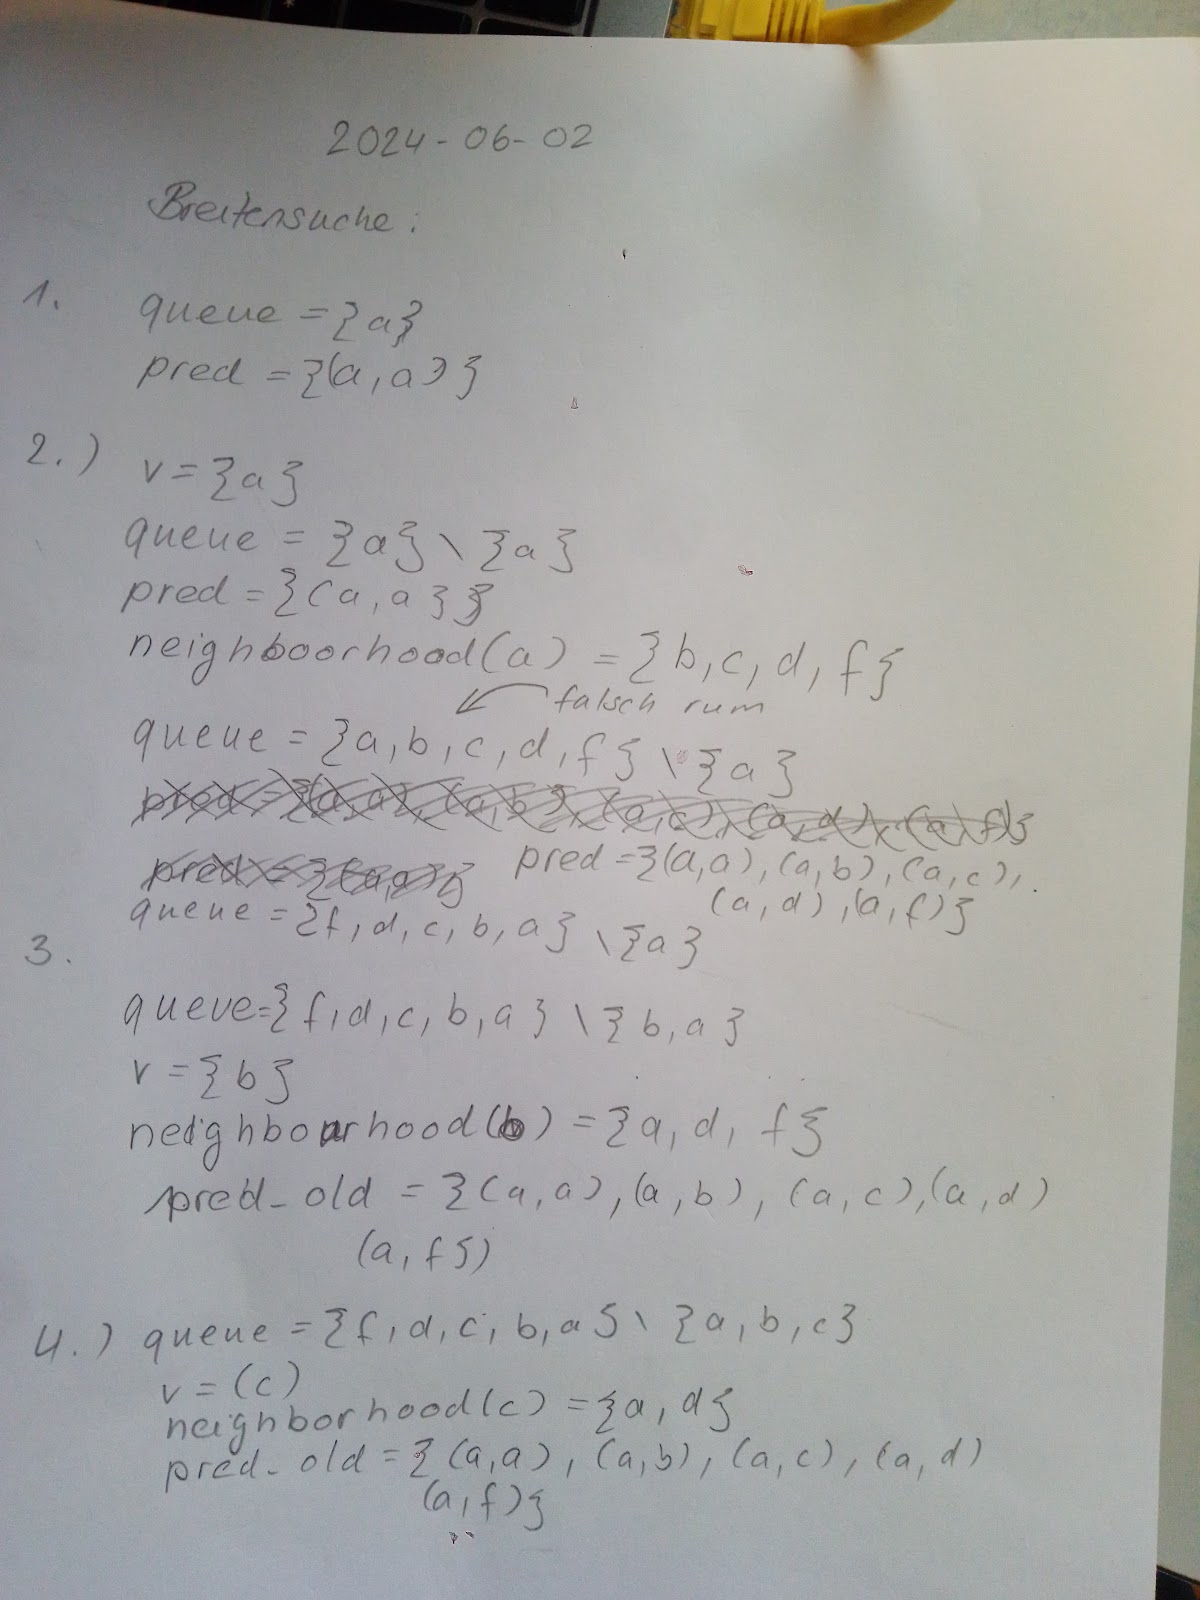 2024-06-02
Breitensuche:
1. queue = {a}
pred = {(a, a)}
2.) v = {a}
queue = {a} \ {a}
pred = {(a, a}}
neighboorhood(a) = {b, c, d, f}
falsch rum
queue = {a, b, c, d, f} \ {a}
pred = {(a, a), (a, b), (a, c), (a, d), (a, f)}
pred = {(a, a)} pred = {(a, a), (a, b), (a, c),
(a, d), (a, f)}
queue = {f, d, c, b, a} \ {a}
3.
queue = {f, d, c, b, a} \ {b, a}
v = {b}
neighbourhood(b) = {a, d, f}
pred_old = {(a, a), (a, b), (a, c), (a, d)
(a, f})
4.) queue = {f, d, c, b, a} \ {a, b, c}
v = (c)
neighborhood(c) = {a, d}
pred_old = {(a, a), (a, b), (a, c), (a, d)
(a, f)}